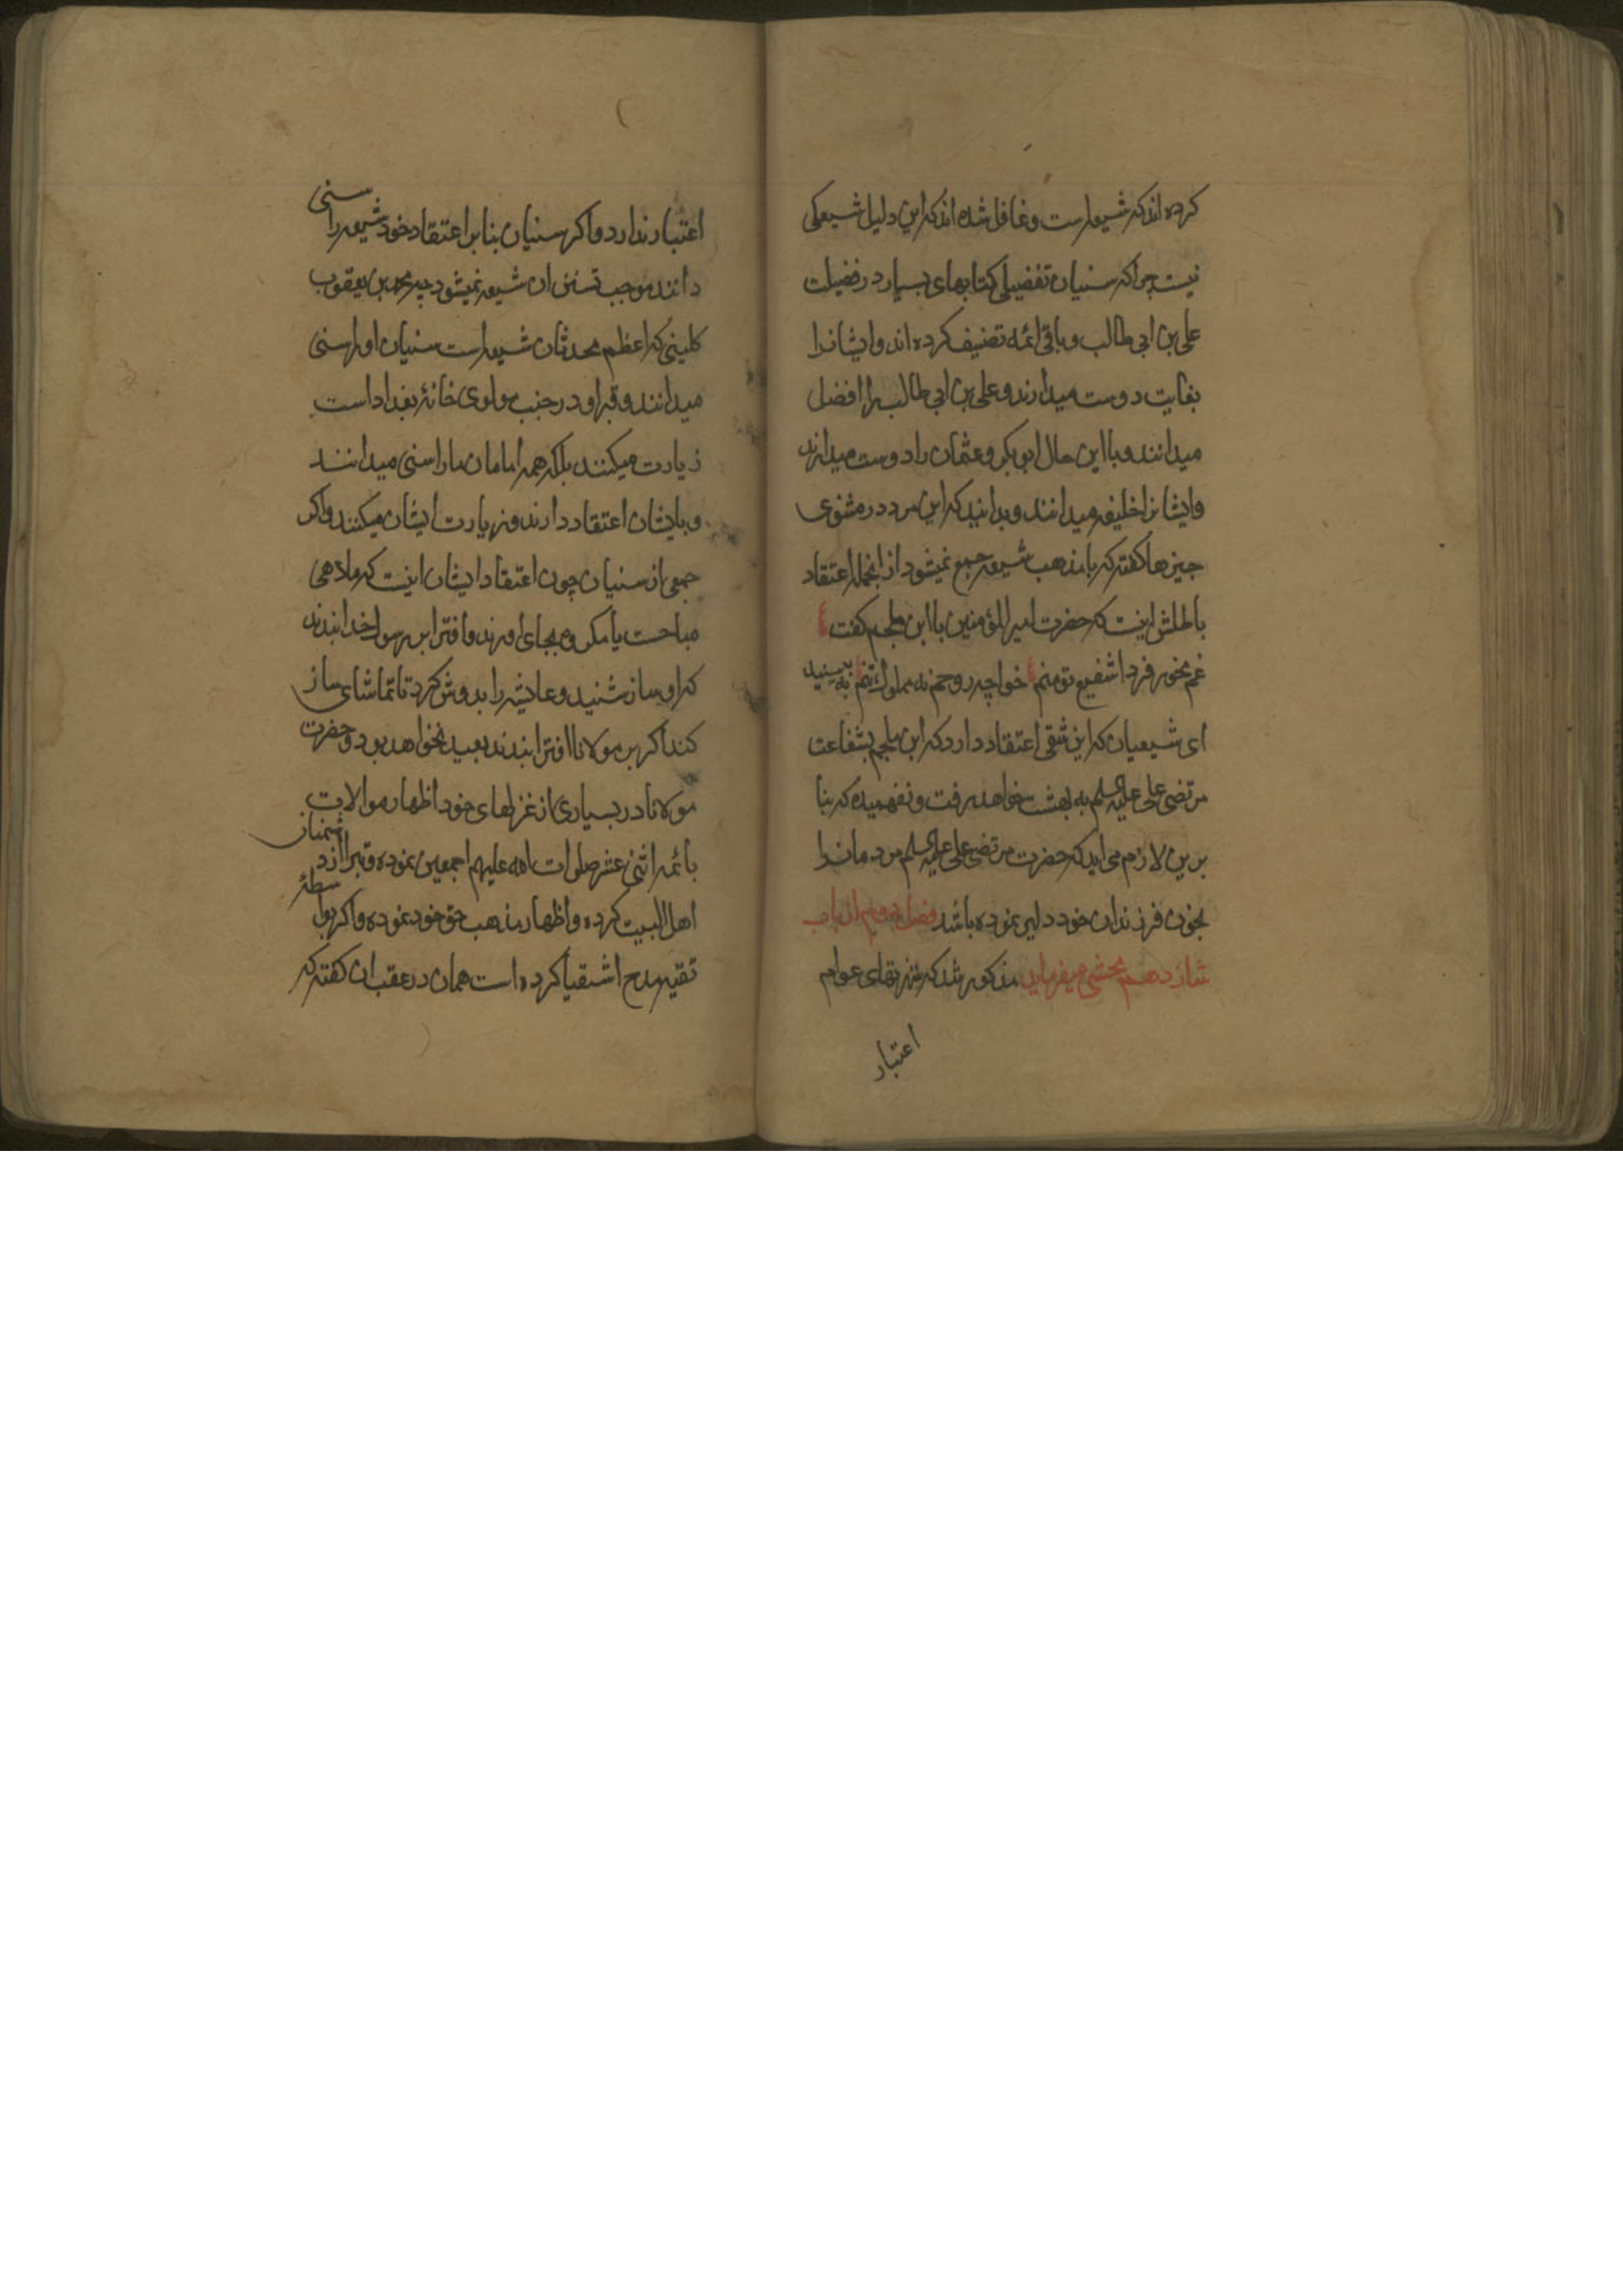 کرده اند که شیعه است و غافل شده اند که این دلیل شیعکی
نیست چرا که سنیان تفضیلی کتابهای بسیار در فضیلت
علی بن ابی طالب و باقی ائمه تصنیف کرده اند و ایشانرا
بغایت دوست میدارند و علی بن ابی طالب را افضل
میدانند و با این حال ابو بکر و عثمان را دوست میدارند
و ایشانرا خلیفه میدانند و بدانید که این مرد در مثنوی
چیزها کفته که با مذهب شیعه جمع نمیشود از انجمله اعتقاد
باطلش اینست که حضرت امیر المؤمنین با ابن ملجم کفت
غم مخور فردا شفیع تو منم خواجه روحم نه مملوک تنم به بینید
ای شیعیان که این شقی اعتقاد دارد که ابن ملجم بشفاعت
مرتضی علی علیه السلم به بهشت خواهد رفت و نفهمیده که بنا
برین لازم می اید که حضرت مرتضی علی علیه السلم مردمانرا
بخون فرزندان خود دلیر نموده باشد فصل دوم از باب
شازدهم محشی میفرماید مذکور شد که عوام
اعتبار
اعتبار ندارد و اکر سنیان بنا بر اعتقاد خود شیعه را سنی
دانند موجب تسنن ان شیعه نمیشود چه محمد بن یعقوب
کلینی که اعظم محدثان شیعه است سنیان او را سنی
میدانند و قبر او در جنب مولوی خانۀ بغداد است
زیارت میکنند بلکه همه امامان ما را سنی میدانند
و بایشان اعتقاد دارند و زیارت ایشان میکنند و اکر
جمعی از سنیان چون اعتقاد ایشان اینست که ملاهی
مباحست یا مکروه بجای اورند و افترا بر رسول خدا بندند
که او ساز شنید و عایشه را بدوش کرد تا تماشای ساز
کند اکر بر مولانا افترا بندند بعید نخواهد بود و حضرت
مولانا در بسیاری از غزلهای خود اظهار موالات
بائمه اثنی عشر صلوات الله علیهم اجمعین نموده و تبرا از دشمنان
اهل البیت کرده و اظهار مذهب حق خود نموده و اکر بواسطۀ
تقیه مدح اشقیا کرده است همان در عقب ان کفته که